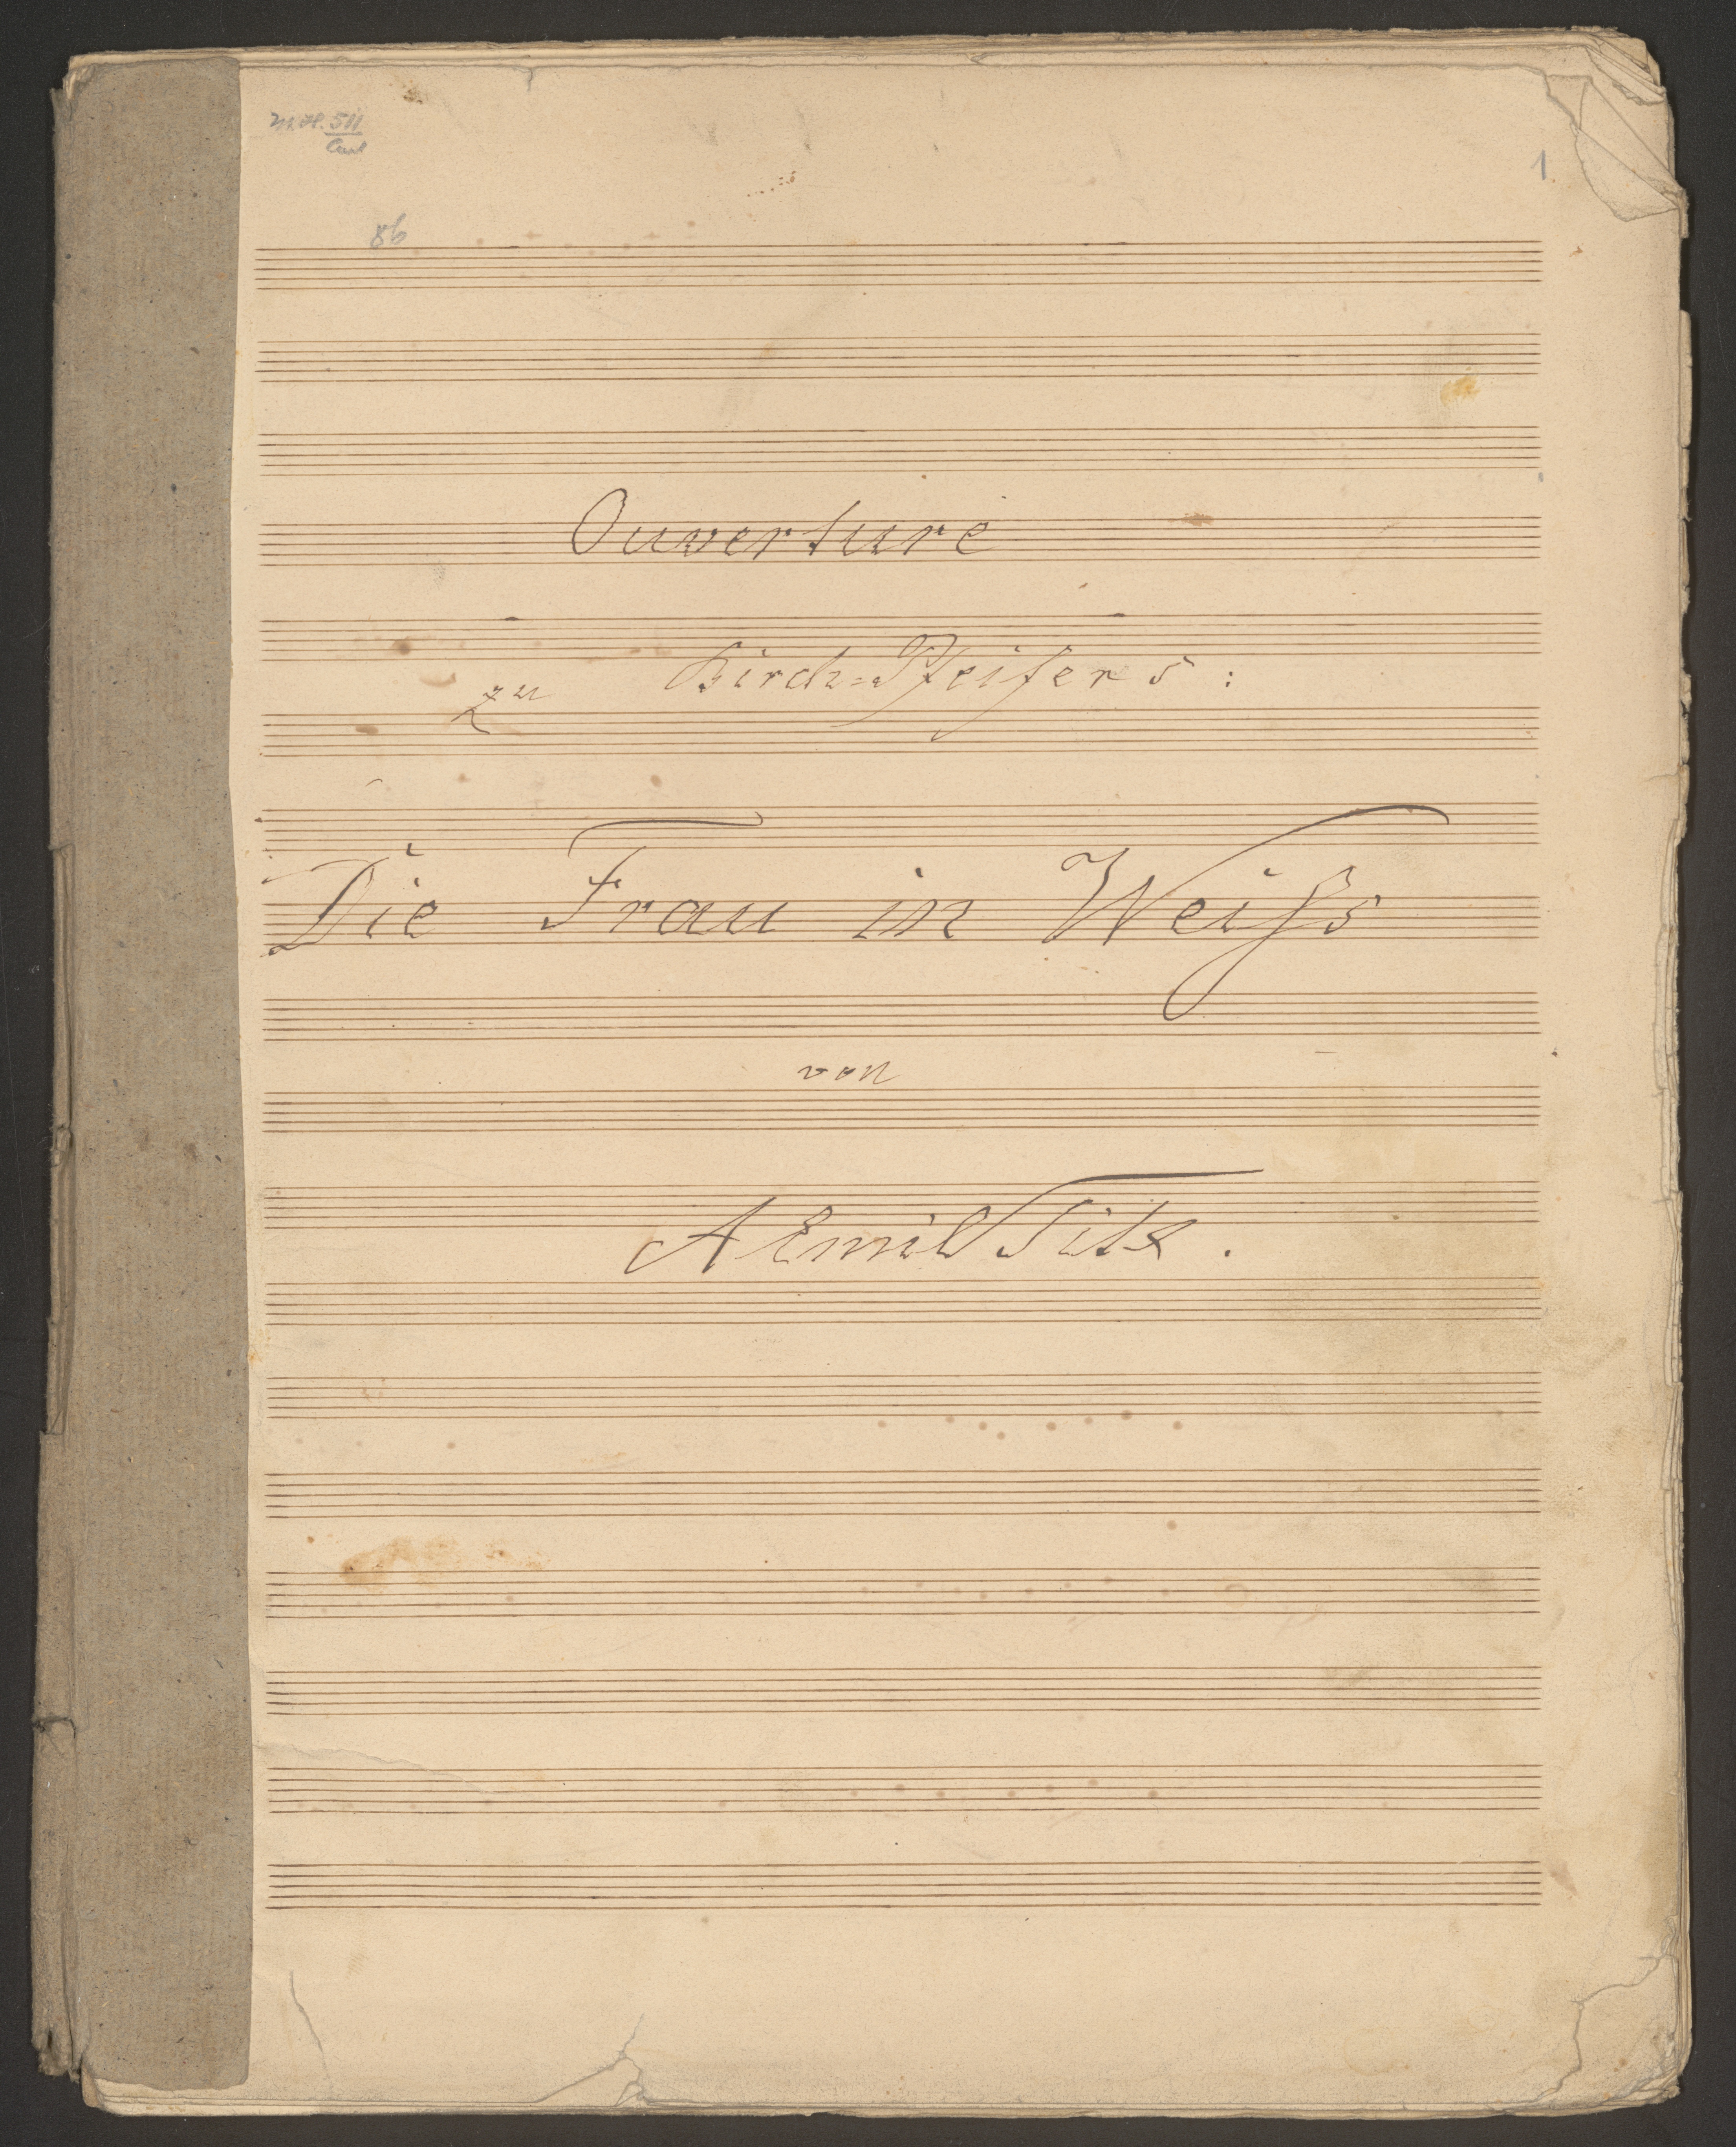 511
86
1
Ouverture
zu Birch=Pfeifers:
Die Frau in Weiſs
von
A Emil Titl.